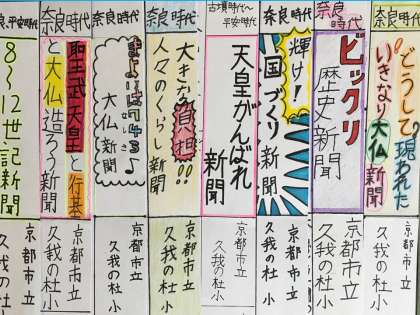 奈良時代
どうして現われた
いきなり大仏新聞
京都市立
久我の杜小
奈良時代
ビックリ
歴史新聞
京都市立
久我の杜小
奈良時代
輝け!
国づくり新聞
京都市立
久我の杜小
古墳時代〜
平安時代
天皇がんばれ
新聞
京都市立
久我の杜小
奈良時代
大きな負担!!
人々のくらし新聞
京都市立
久我の杜小
奈良時代
743♪
大仏新聞
京都市立
久我の杜小
奈良時代
聖武天皇と行基
と大仏造ろう新聞
京都市立
久我の杜小
良・平安時代
8〜12世記新聞
京都市立
久我の杜小